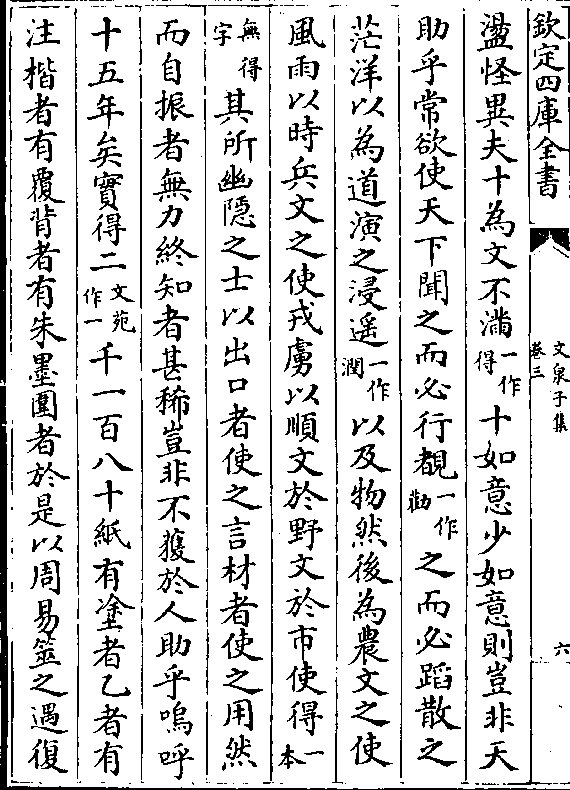 欽定四庫全書
文泉子集
卷三
六
盪怪異夫十為文不滿一作得十如意少如意則豈非天
助乎常欲使天下聞之而必行覩一作勸之而必蹈散之
茫洋以為道演之浸遥一作潤以及物然後為農文之使
風雨以時兵文之使戎虜以順文於野文於市使得一本
無得字其所幽隱之士以出口者使之言材者使之用然
而自振者無力終知者甚稀豈非不獲於人助乎嗚呼
十五年矣實得二文苑作一千一百八十紙有塗者乙者有
注楷者有覆背者有朱墨圍者於是以周易筮之遇復